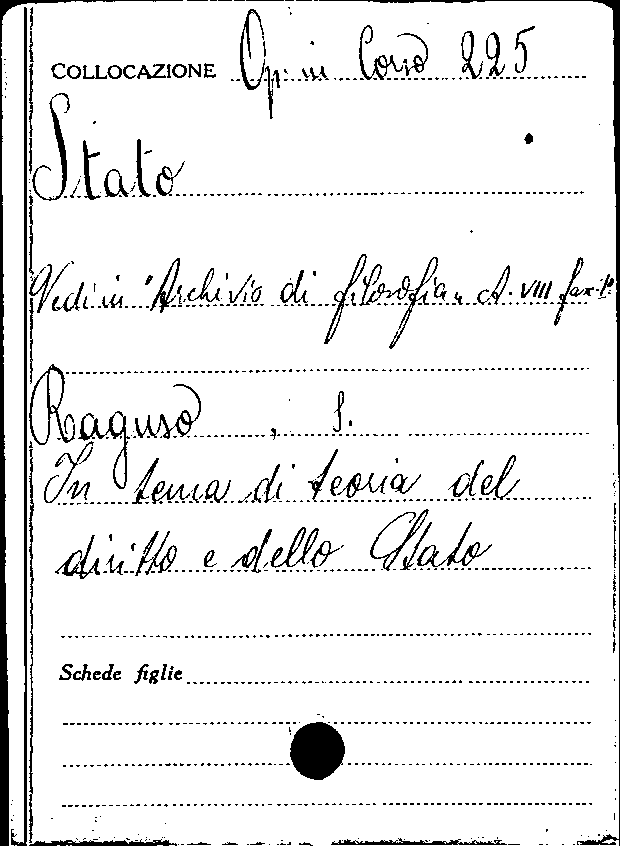 COLLOCAZIONE Op. in Corso 225
Stato
Vedi in "Archivio di filosofia" A. VIII fasc. 1º
Raguso, S.
In tema di teoria del
diritto e dello Stato
Schede figlie